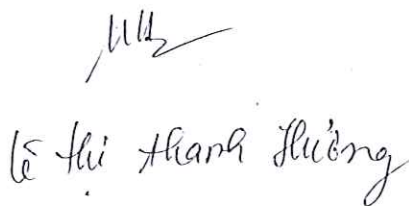 Lê Thị Thanh Hường